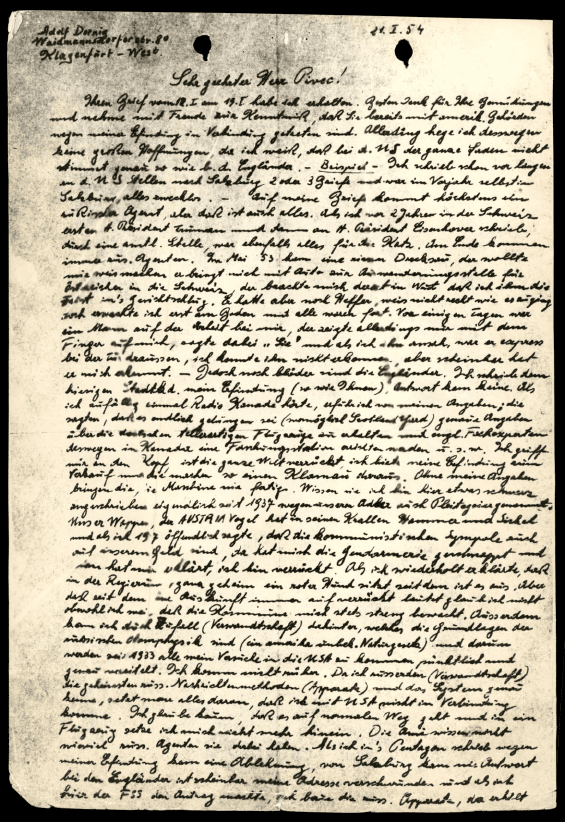 Adolf Dornig
Waidmannsdorferstr. 80
Klagenfurt - West
21. I. 54
Sehr geehrter Herr Pivec!
Ihren Brief vom 18. I am 19. I habe ich erhalten. Besten Dank für Ihre Bemühungen
und nehme mit Freude zur Kenntnis, daß Sie bereits mit amerik. Behörden
wegen meiner Erfindung in Verbindung getreten sind. Allerdings hege ich deswegen
keine großen Hoffnungen, da ich weiß, daß bei d. US der ganze Laden nicht
stimmt genau so wie b. d. Engländer. - Beispiel - Ich schrieb schon vor langem
an d. US Stellen nach Salzburg 2 oder 3 Briefe und war im Vorjahr selbst in
Salzburg, alles zwecklos. - Auf meine Briefe kommt höchstens ein
russischer Agent, aber das ist auch alles. Als ich vor 2 Jahren in der Schweiz
erst an H. Präsident Truman und dann an H. Präsident Eisenhover schrieb,
durch eine amtl. Stelle, war ebenfalls alles für die Katz. Am Ende kommen
immer russ. Agenten. Im Mai 53 kam eine einen, der wollte
mir weismachen er bringt mich mit Auto zur Auswanderungsstelle für
Österreicher in die Schweiz, der brachte mich derart in Wut daß ich ihm die
Faust in's Gesicht schlug. Er hatte aber noch Helfer, weis nicht recht wie es ausging
noch erwachte ich erst am Boden und alle waren fort. Vor einigen Tagen war
ein Mann auf der Arbeit bei mir, der zeigte allerdings nur mit dem
Finger auf mich, sagte dabei "Sie" und als ich ihn ansah, war er express
bei der Tür draussen, ich konnte ihn nicht erkennen, aber scheinbar hat
er mich erkannt. - Jedoch noch blöder sind die Engländer. Ich schrieb dem
hiesigen meine Erfindung (so wie Ihnen), Antwort kam keine. Als
ich zufällig einmal Radio Kanada hörte, erfuhr ich von meinen Angaben, die
sagten, daß es endlich gelungen sei (womöglich Scotland Yard) genaue Angaben
über die deutschen tellerartigen Flugzeuge zu erhalten und engl. Fachexperten
deswegen in Kanada eine Forschungsstation errichten werden u. s. w. Ich griff
mir an den Kopf, ist die ganze Welt verrückt, ich biete meine Erfindung zum
Verkauf und die machen so einen Klamauk daraus. Ohne meine Angaben
bringen die, die Maschine nie fertig. Wissen Sie ich bin hier etwas schwarz
angeschrieben eigentlich seit 1937 wegen unseren Adler auch Pleitegeier genannt.
Unser Wappen, der AUSTRIA Vogel hat in seinen Krallen Hammer und Sichel
und als ich 1937 öffentlich sagte, daß die kommunistischen Symbole auch
auf unserem Geld sind, da hat mich die Gendarmerie geschnappt und
man hat mir erklärt, ich bin verrückt. Als ich wiederholt erklärte, daß
in der Regierung, ganz geheim ein roter Hund sitzt seitdem ist es aus. Aber
daß seit dem die Auskünft immer auf verrückt lautet glaub ich nicht
obwohl ich weiß, daß die Kommune mich stets streng bewacht. Ausserdem
kam ich durch Zufall (Verwandtschaft) dahinter, welches die Grundlagen der
russischen Atomphysik sind (ein Naturgesetz) und darum
werden seit 1933 alle mein Versuche in die USA zu kommen, pünktlich und
genau vereitelt. Ich komm nicht rüber. Da ich ausserdem (Verwandtschaft)
die geheimsten russ. Nachrichtenmethoden (Apparate) und das System genau
kenne, setzt man alles daran, daß ich mit USA nicht in Verbindung
komme. Ich glaube kaum, daß es auf normalen Weg geht und in ein
Flugzeug setze ich mich nicht mehr hinein. Die Amis wissen nicht
wieviel russ. Agenten sie dabei haben. Als ich in's Pentagon schrieb wegen
meiner Erfindung kam eine Ablehnung, von Salzburg kam nie Antwort
bei den Engländer ist scheinbar meine Adresse verschwunden und als ich
hier der FSS den Antrag machte, ich baue die russ. Apparate, da erhielt